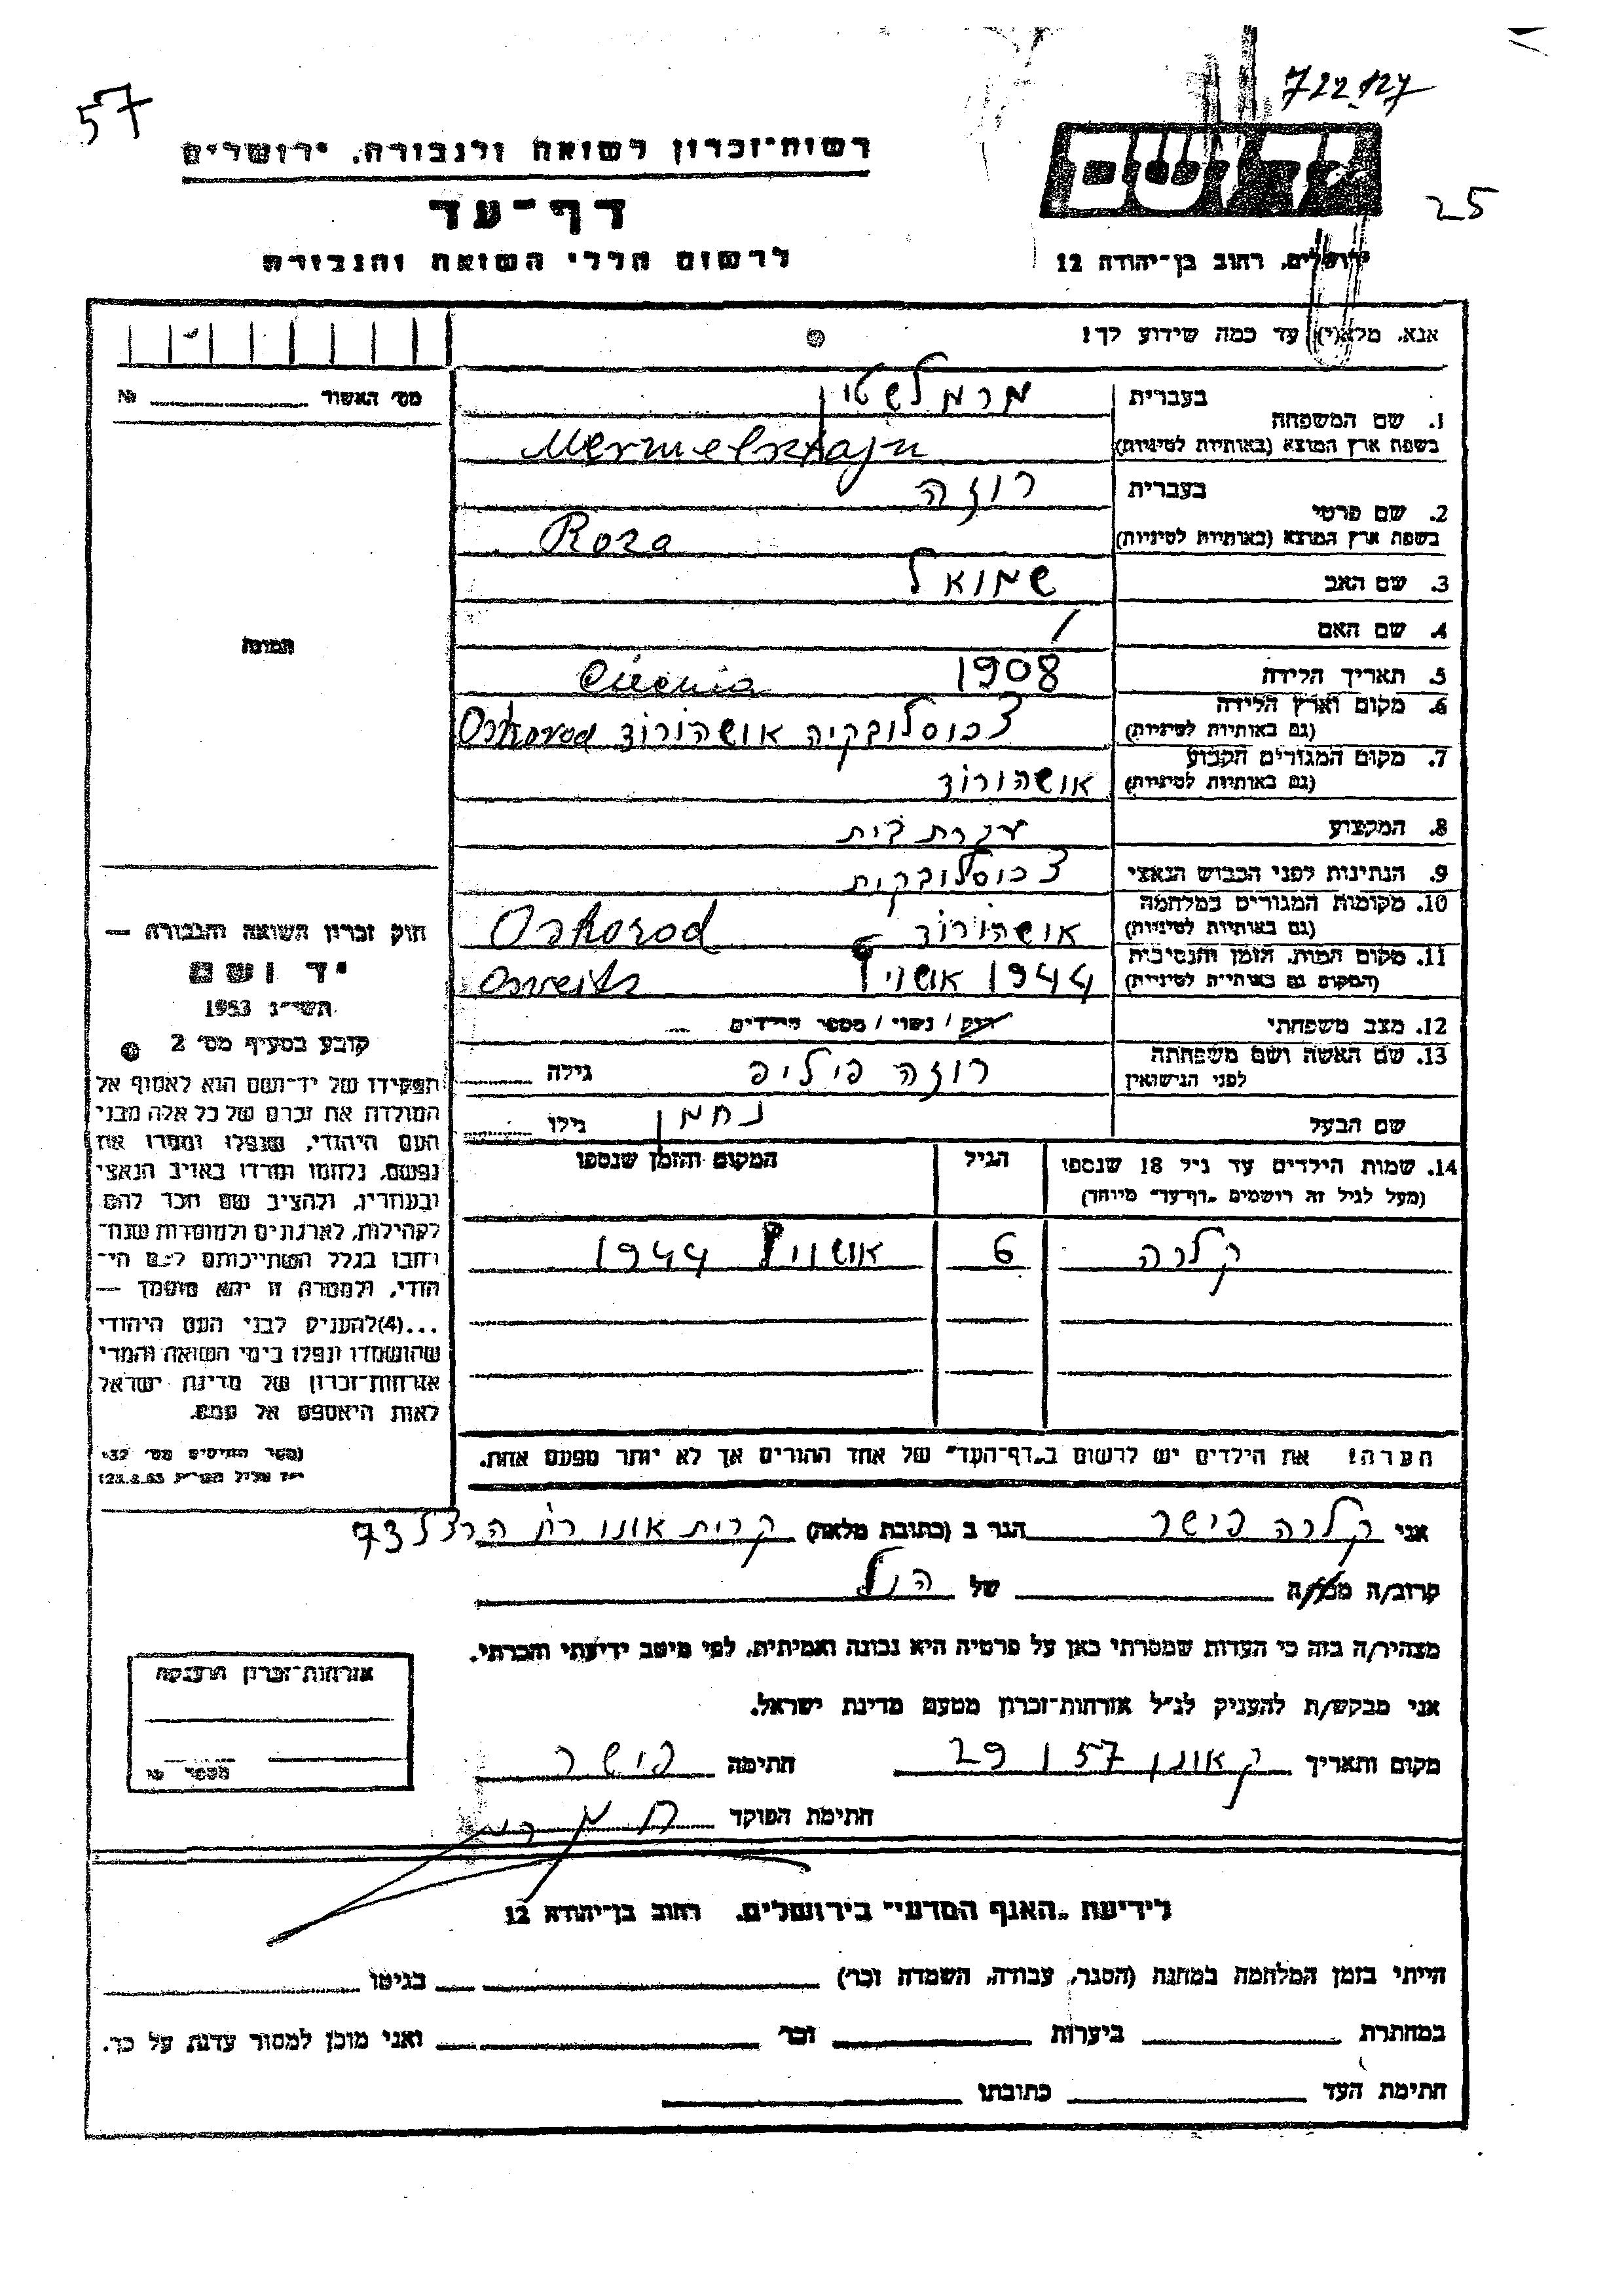 57
722.127
25
רשות-זכרון לשואה ולגבורה, ירושלים
דף-עד
לרשום חללי השואה והגבורה
יד ושם
ירושלים, רחוב בן-יהודה 12
אנא, מלא(י) עד כמה שידוע לך!
מס׳ האשור № 
1. שם המשפחה בעברית מרמלשטיין
בשפת ארץ המוצא (באותיות לטיניות) Mermelsztajn
2. שם פרטי בעברית רוזה
בשפת ארץ המוצא (באותיות לטיניות) Roza
3. שם האב שמואל
4. שם האם /
5. תאריך הלידה 1908
6. מקום וארץ הלידה
(גם באותיות לטיניות) צכוסלובקיה אושהורוד Oshorod
7. מקום המגורים הקבוע
(גם באותיות לטיניות) אושהורוד
8. המקצוע עקרת בית
9. הנתינות לפני הכבוש הנאצי צכוסלובקית
10. מקומות המגורים במלחמה
(גם באותיות לטיניות) אושהורוד Oshorod
11. מקום המות, הזמן והנסיבות
(המקום גם באותיות לטיניות) 1944 אושויץ Osveits
12. מצב משפחתי רווק / נשוי / מספר הילדים
13. שם האשה ושם משפחתה
לפני הנישואין רוזה פיליפ גילה
שם הבעל נחמן גילו
14. שמות הילדים עד גיל 18 שנספו הגיל המקום והזמן שנספו
(מעל לגיל זה רושמים „דף-עד״ מיוחד)
קלרה 6 אושויץ 1944
הערה! את הילדים יש לרשום ב„דף-העד״ של אחד ההורים אך לא יותר מפעם אחת.
תמונה
חוק זכרון השואה והגבורה —
יד ושם
תשי״ג 1953
קובע בסעיף מס׳ 2
תפקידו של יד-ושם הוא לאסוף אל
המולדת את זכרם של כל אלה מבני
העם היהודי, שנפלו ומסרו את
נפשם, נלחמו ומרדו באויב הנאצי
ובעוזריו, ולהציב שם וזכר להם
לקהילות, לארגונים ולמוסדות שנח-
רבו בגלל השתייכותם לעם הי-
הודי, ולמטרה זו יהא מוסמך —
...(4) להעניק לבני העם היהודי
שהושמדו ונפלו בימי השואה והמרי
אזרחות-זכרון של מדינת ישראל
לאות היאספם אל עמם.
(ספר החוקים מס׳ 132
אני קלרה פישר הגר ב (כתובת מלאה) קרית אונו רח הרצל 73
קרוב/ה מכר/ה של הנ״ל
מצהיר/ה בזה כי העדות שמסרתי כאן על פרטיה היא נכונה ואמיתית, לפי מיטב ידיעתי והכרתי.
אני מבקש/ת להעניק לנ״ל אזרחות-זכרון מטעם מדינת ישראל.
מקום ותאריך ק אונו 29 I 57 חתימה פישר
חתימת הפוקד
אזרחות-זכרון הוענקה
מספר №
לידיעת „האגף המדעי״ בירושלים, רחוב בן-יהודה 12
הייתי בזמן המלחמה במחנה (הסגר, עבודה, השמדה וכו׳) בגיטו
במחתרת ביערות וכו׳ ואני מוכן למסור עדות על כך.
חתימת העד כתובתו